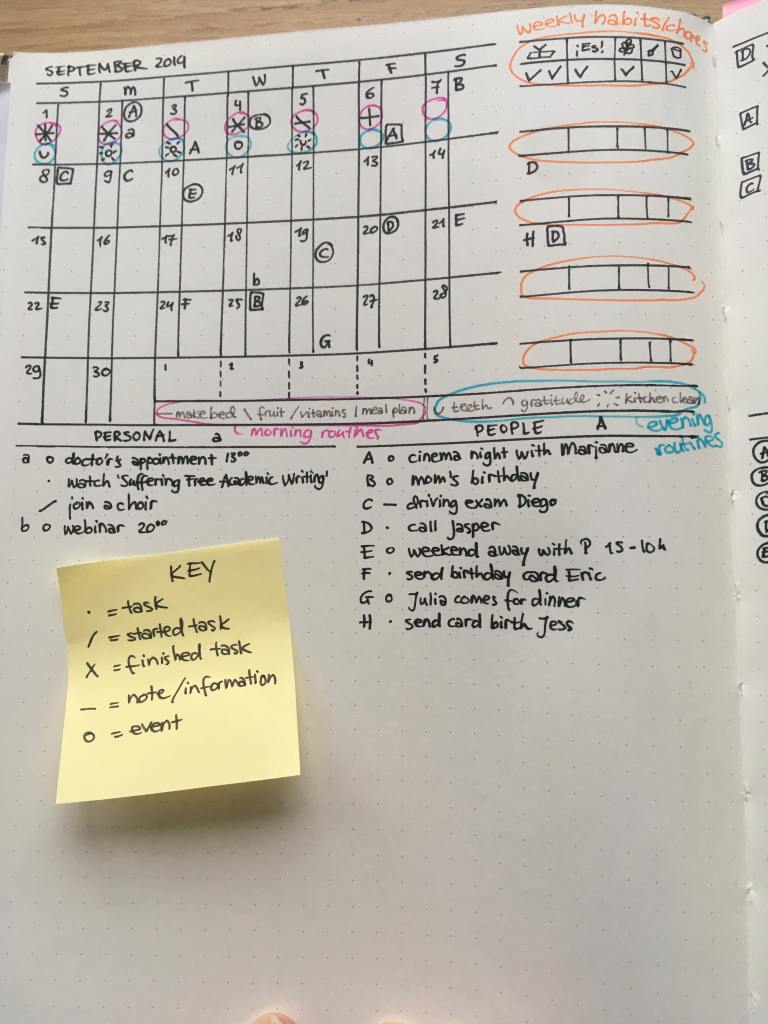 weekly habits/chores
SEPTEMBER 2019
S m T W T F S
¡Es!
1 2 A 3 4 5 6 7 B
a B
A A
D
8 C 9 C 10 11 12 13 14
E
D
15 16 17 18 19 20 D 21 E
C
H D
b
22 E 23 24 F 25 B 26 27 28
G
29 30 1 2 3 4 5
— make bed \ fruit / vitamins | meal plan
teeth gratitude kitchen clean
morning routines
evening routines
PERSONAL a
PEOPLE A
a o doctor's appointment 13⁰⁰
· watch 'Suffering Free Academic Writing'
/ join a choir
b o webinar 20⁰⁰
A o cinema night with Marjanne
B o mom's birthday
C – driving exam Diego
D · call Jasper
E o weekend away with P 15-10h
F · send birthday card Eric
G o Julia comes for dinner
H · send card birth Jess
KEY
· = task
/ = started task
X = finished task
— = note/information
o = event
D
A
B
C
A
B
C
D
E